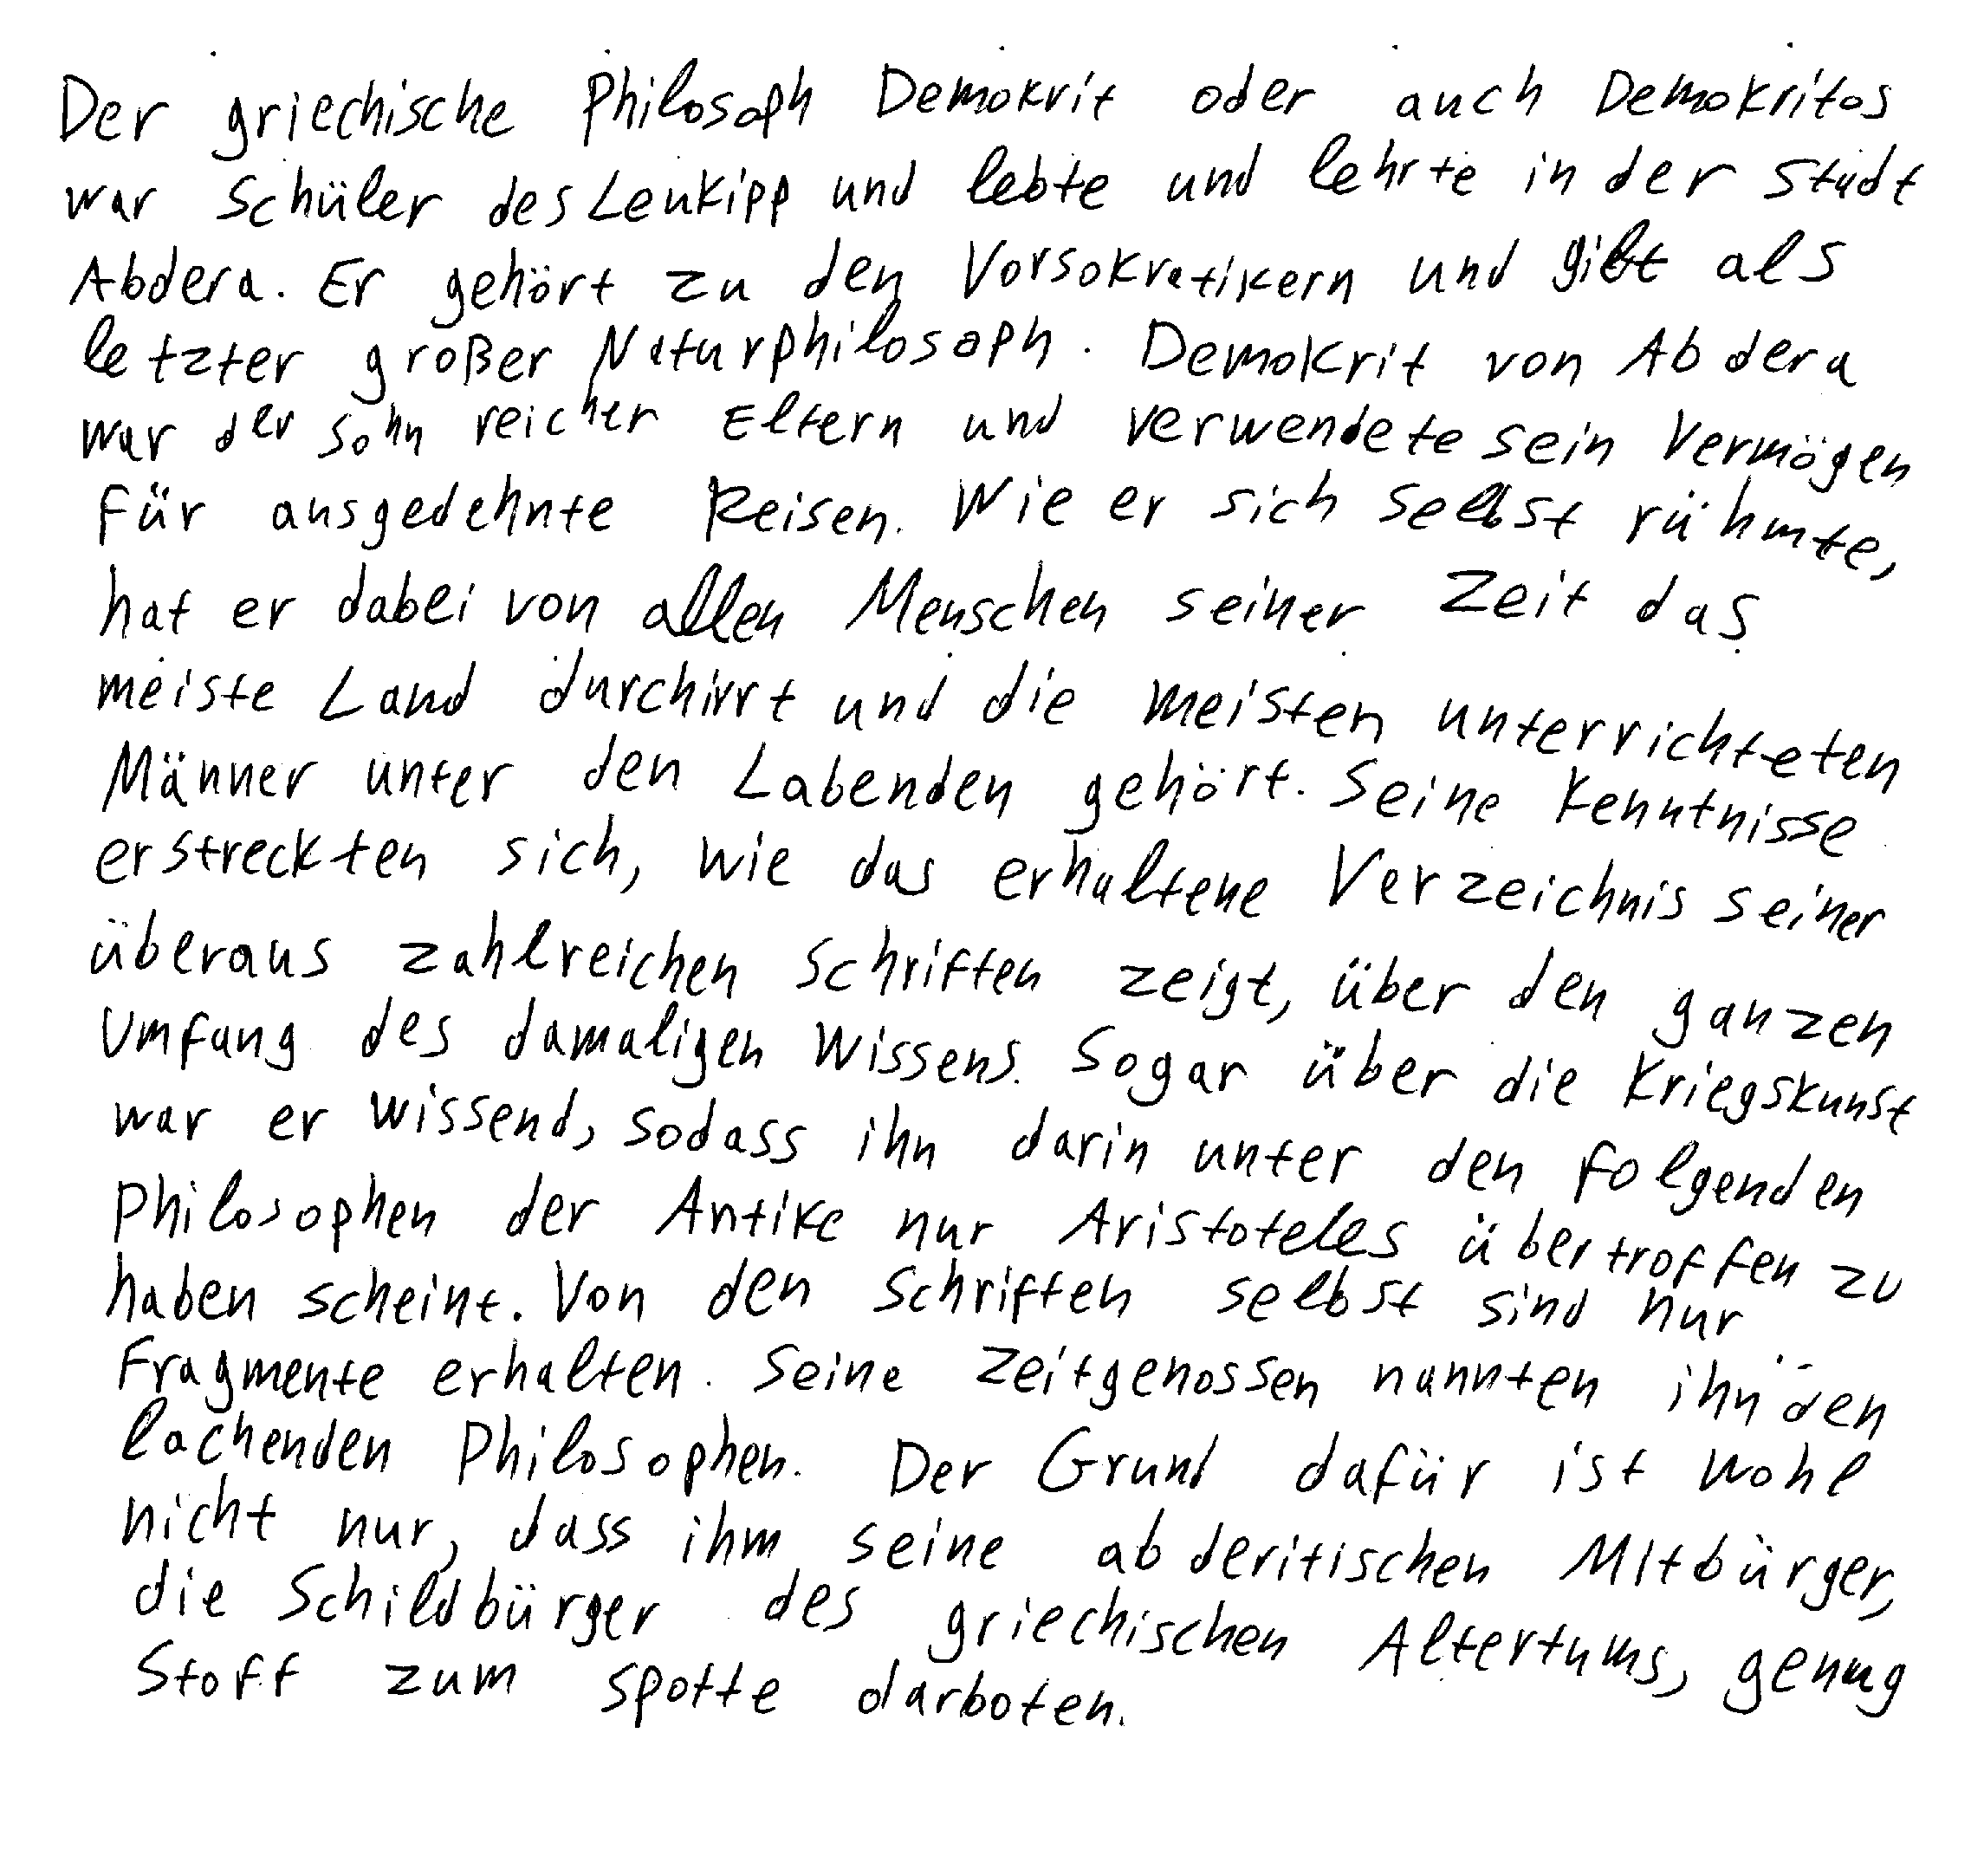 Der griechische Philosoph Demokrit oder auch Demokritos
war Schüler des Leukipp und lebte und lehrte in der Stadt
Abdera. Er gehört zu den Vorsokratikern und gibt als
letzter großer Naturphilosoph. Demokrit von Abdera
war der Sohn reicher Eltern und verwendete sein Vermögen
für ausgedehnte Reisen. Wie er sich selbst rühmte,
hat er dabei von allen Menschen seiner Zeit das
meiste Land durchirrt und die meisten unterrichteten
Männer unter den Labenden gehört. Seine Kenntnisse
erstreckten sich, wie das erhaltene Verzeichnis seiner
überaus zahlreichen Schriften zeigt, über den ganzen
Umfang des damaligen Wissens. Sogar über die Kriegskunst
war er wissend, sodass ihn darin unter den folgenden
Philosophen der Antike nur Aristoteles übertroffen zu
haben scheint. Von den Schriften selbst sind nur
Fragmente erhalten. Seine Zeitgenossen nannten ihn den
lachenden Philosophen. Der Grund dafür ist wohl
nicht nur, dass ihm seine abderitischen MItbürger,
die Schildbürger des griechischen Altertums, genug
Stoff zum Spotte darboten.